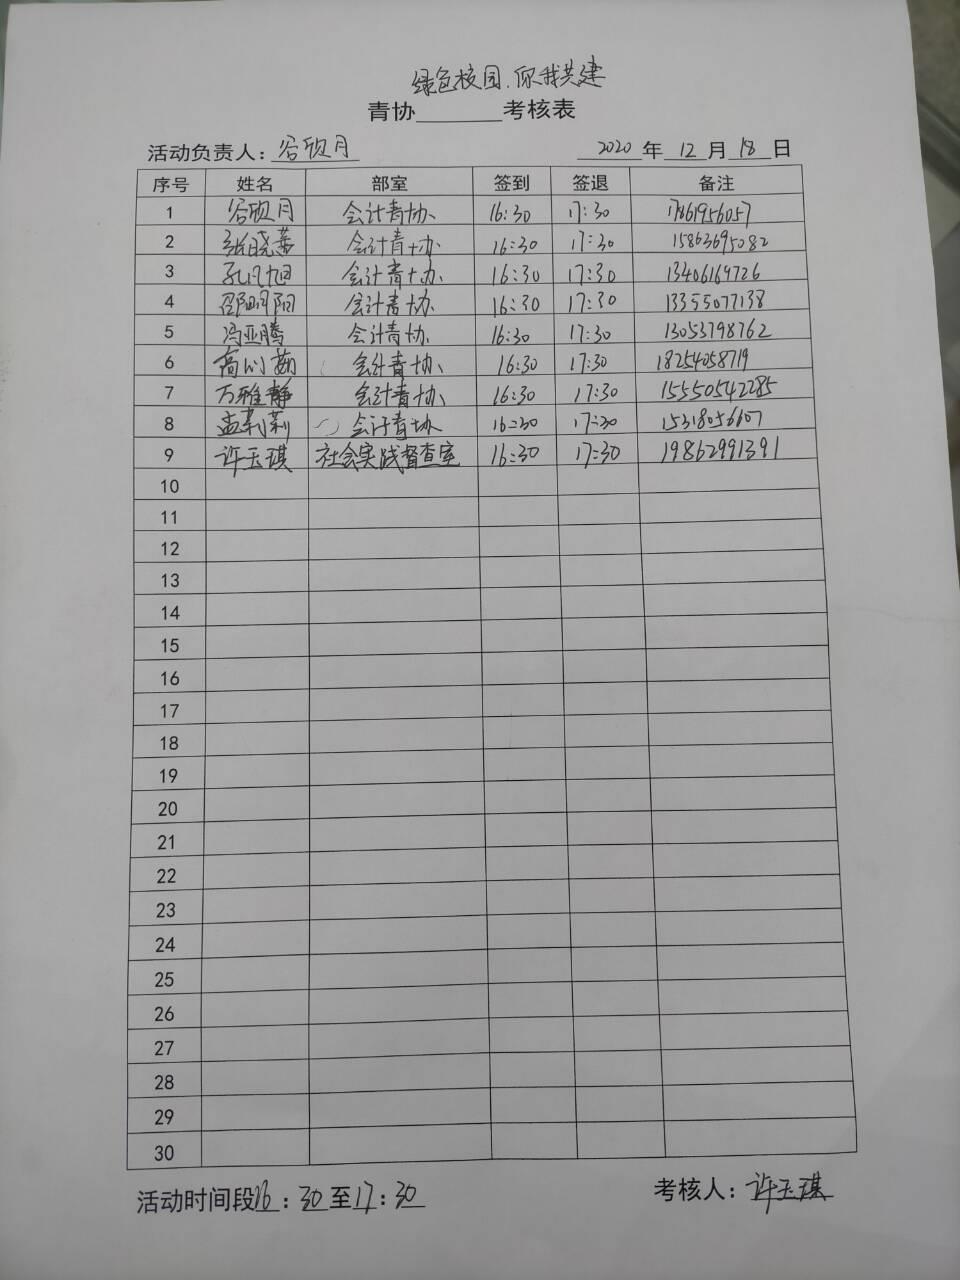 绿色校园.你我共建
青协________考核表
活动负责人：谷欣月 2020年12月18日
序号 姓名 部室 签到 签退 备注
1 谷欣月 会计青协 16:30 17:30 17861956057
2 张晓蕾 会计青协 16:30 17:30 15863695082
3 孔凡旭 会计青协 16:30 17:30 13406169726
4 邵阳阳 会计青协 16:30 17:30 13355077138
5 冯亚腾 会计青协 16:30 17:30 13053798762
6 高 会计青协 16:30 17:30 18254058719
7 万雅静 会计青协 16:30 17:30 15550542285
8 孟莉莉 会计青协 16:30 17:30 15318056107
9 许玉琪 社会实践督查室 16:30 17:30 19862991391
10
11
12
13
14
15
16
17
18
19
20
21
22
23
24
25
26
27
28
29
30
活动时间段16：30至17：30 考核人：许玉琪